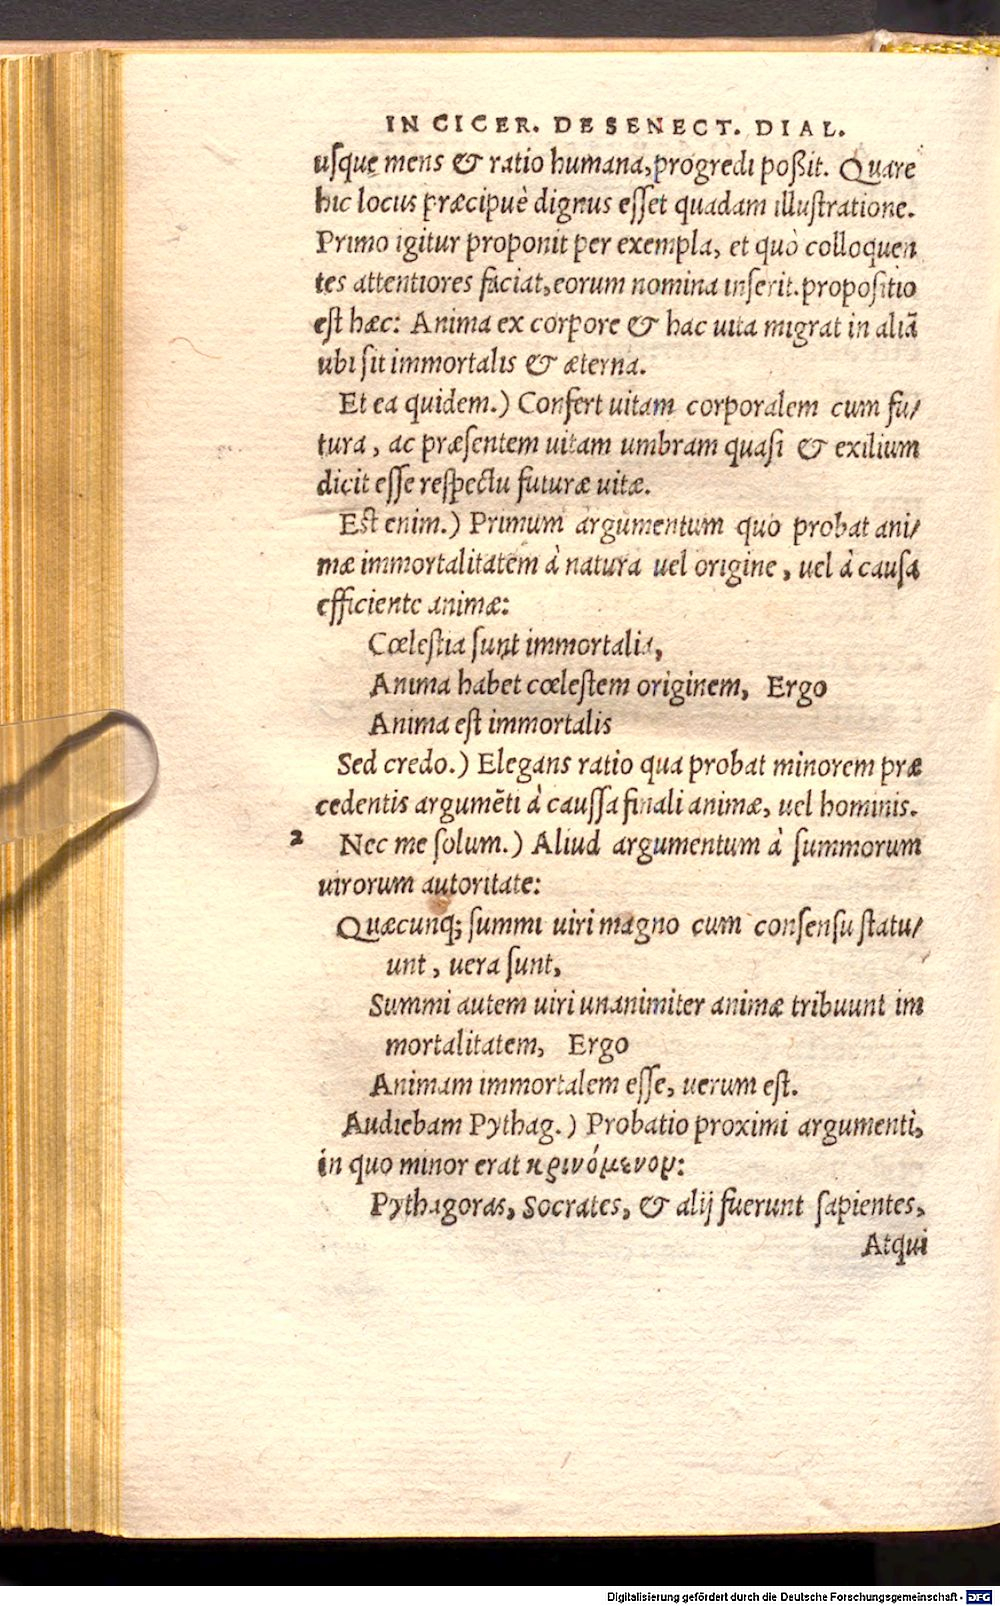 IN CICER. DE SENECT. DIAL.
uſquę mens & ratio humana, progredi poßit. Quare
hic locus præcipuè dignus eſſet quadam illuſtratione.
Primo igitur proponit per exempla, et quò colloquen
tes attentiores faciat, eorum nomina inſerit. propoſitio
eſt hæc: Anima ex corpore & hac uita migrat in aliā
ubi ſit immortalis & æterna.
Et ea quidem.) Confert uitam corporalem cum fu/
tura, ac præſentem uitam umbram quaſi & exilium
dicit eſſe reſpectu futuræ uitæ.
Eſt enim.) Primum argumentum quo probat ani/
mæ immortalitatem à natura uel origine, uel à cauſa
efficiente animæ:
Cœleſtia ſunt immortalia,
Anima habet cœleſtem originem, Ergo
Anima eſt immortalis
Sed credo.) Elegans ratio qua probat minorem præ
cedentis argumēti à cauſſa finali animæ, uel hominis.
2 Nec me ſolum.) Aliud argumentum à ſummorum
uirorum autoritate:
Quæcunq; ſummi uiri magno cum conſenſu ſtatu/
unt, uera ſunt,
Summi autem uiri unanimiter animæ tribuunt im
mortalitatem, Ergo
Animam immortalem eſſe, uerum eſt.
Audiebam Pythag.) Probatio proximi argumenti,
in quo minor erat κρινόμενον:
Pythagoras, Socrates, & alij fuerunt ſapientes,
Atqui
Digitalisierung gefördert durch die Deutsche Forschungsgemeinschaft - DFG